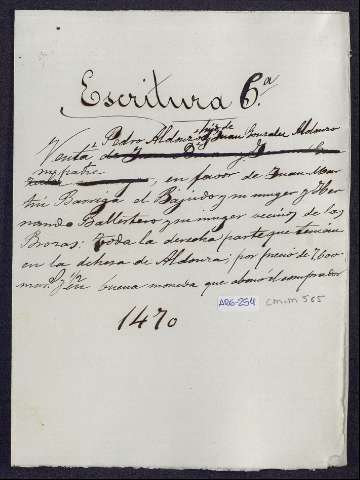 Escritura 6.ª
Pedro Aldonzo hijo de Juan Gonzalez Aldonzo
Venta de
, en favor de Juan Mar-
tin Barriga el Bajudo y su muger y Her-
nando Ballestero y su muger vecinos de las
Brozas: toda la derecha parte que tenian
en la dehesa de Aldonza; por precio de 7600
mrs. en buena moneda que abonó el comprador
1470
ARG-254
CM.M 565